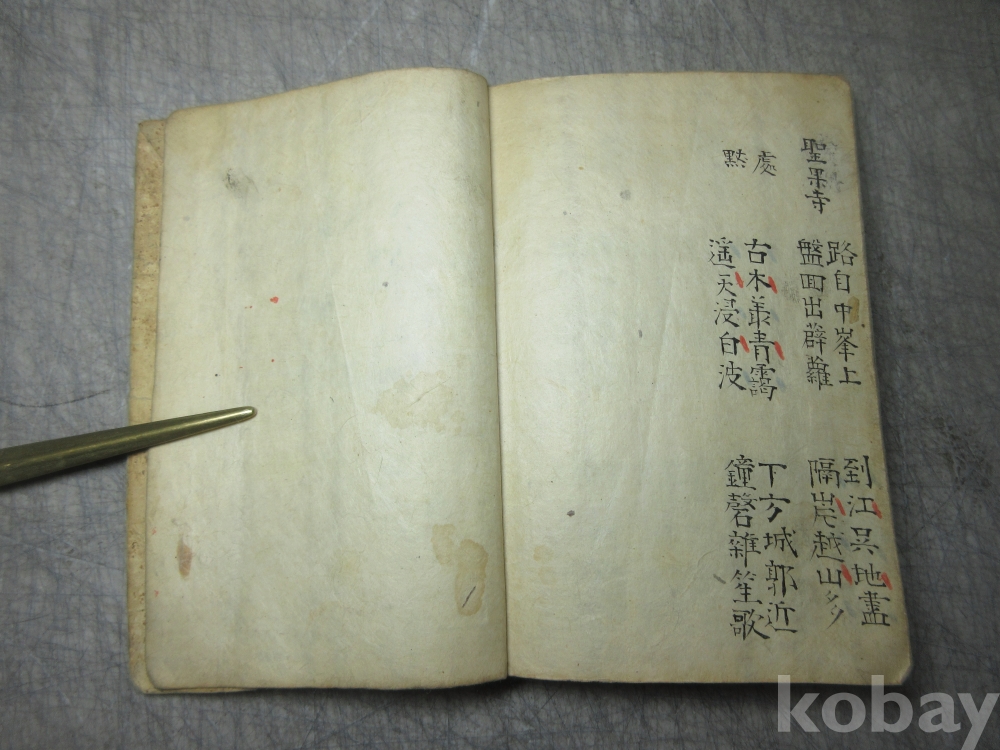 聖果寺
路自中峯上
盤囬出薜蘿
到江呉地盡
隔岸越山多
處
黙
古木叢青靄
遥天浸白波
下方城郭近
鐘磬雜笙歌
kobay